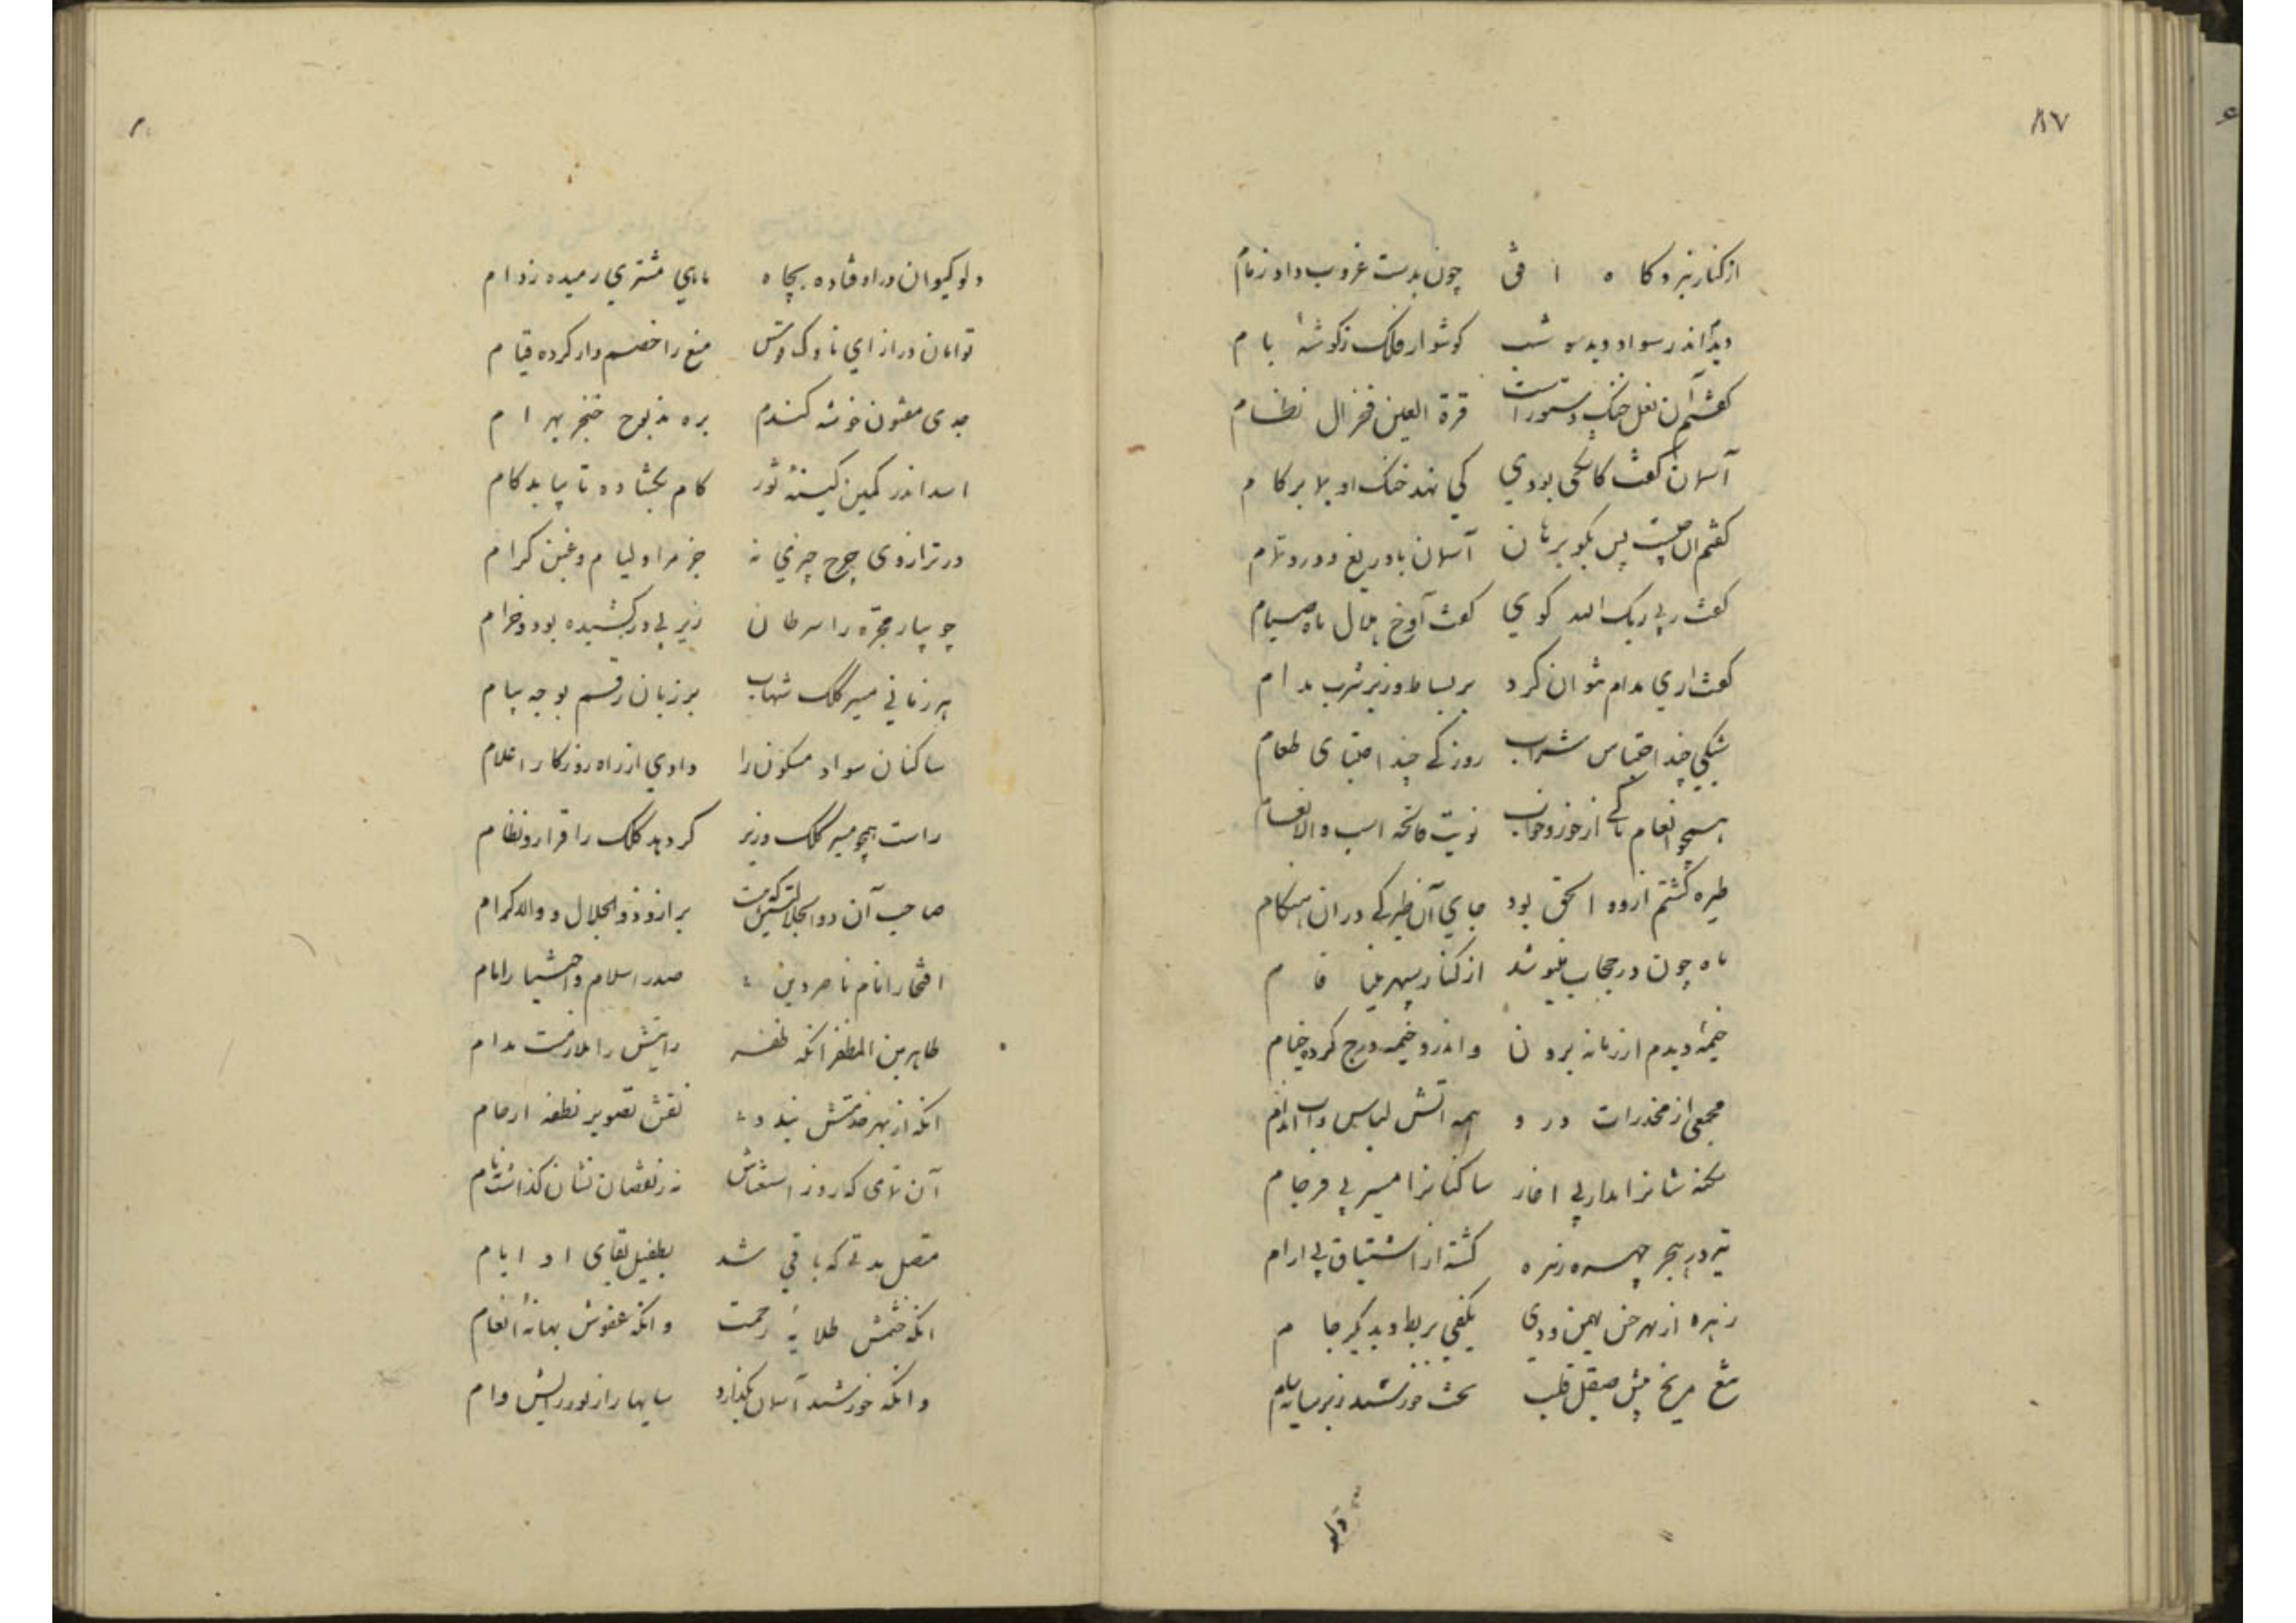 ٨٧
از کنار نبرد کا ه ا فق چون بدست غروب داد زمام
دیدم اندر سواد دیده شب کوشوار فلک ز کوشهٔ بام
کفتم آن نعل خنک دستورست قرة العین فخر ال نظام
آسمان کفت کاشکی بودی کی نهد خنک او بلا بر کام
کفتم ان چیست پس بکو برهان آسمان با دریغ و درد تمام
کفت ربی ربک الله کوی کفت آوخ هلال ماه صیام
کفت اری مدام نتوان کرد بر بساط وزیر شرب مدام
شبکی چند احتباس شراب روزکی چند احتمای طعام
همچو انعام تا کی از خور و خواب نوبت فاتحه است والانعام
طیره کشتم ازو و الحق بود جای آن طیرکی در ان هنکام
ماه چون در حجاب میغ شد از کنار سپهر مینا فا م
خیمهٔ دیدم از زمانه برون و اندرو خیمه درج کرده خیام
مجمعی از مخدرات درو همه اتش لباس و آب اندام
سخنشانرا مدار بی اغاز ساکنانرا مسیر بی فرجام
تیر در هجر چهره زهره کشته از اشتیاق بی ارام
زهره از بهر خس بهمن و دی بکفی بربط و بدیکر جا م
تیغ مریخ پیش صیقل قلب تحت خورشید زیر سایه بام
دلو
دلو کیوان در اوفتاده بچاه ماهی مشتری رمیده ز دام
توامان در ازای ناوک قوس تیغ را خصم وار کرده قیام
جدی مفتون خوشه کندم بره مذبوح خنجر بهرام
اسد اندر کمین کینهٔ ثور کام بکشاده تا بیابد کام
در ترازوی چرخ چیزی نه جز مراد لیام و غبن کرام
جویبار مجره را سرطان زیر پی درکشیده بود و خرام
هر زمانی مسیر کلک شهاب بر زبان رقم بوجه پیام
ساکنان سواد مسکونرا دادی از راه روزکار اعلام
راست همچو مسیر کلک وزیر کردد ملک را قرار و نظام
صاحب آن ذوالجلالتین که هست برتر از ذوالجلال والاکرام
افتخار انام ناصر دین صدر اسلام و اختیار انام
طاهر بن المظفر انکه ظفر رایتش را ملازمت مدام
انکه از بهر خدمتش بندد نقش تصویر نطفه ارحام
آن تمامی که روز استغناش نه ز نقصان نشان کذاشت نه نام
متصل مدتی که باقی شد بطفیل بقای او ایام
انکه خشمش طلایهٔ رحمت وانکه عفوش بهانهٔ انعام
وانکه خورشید آسمان بکذارد سایها را ز نور رایش وام